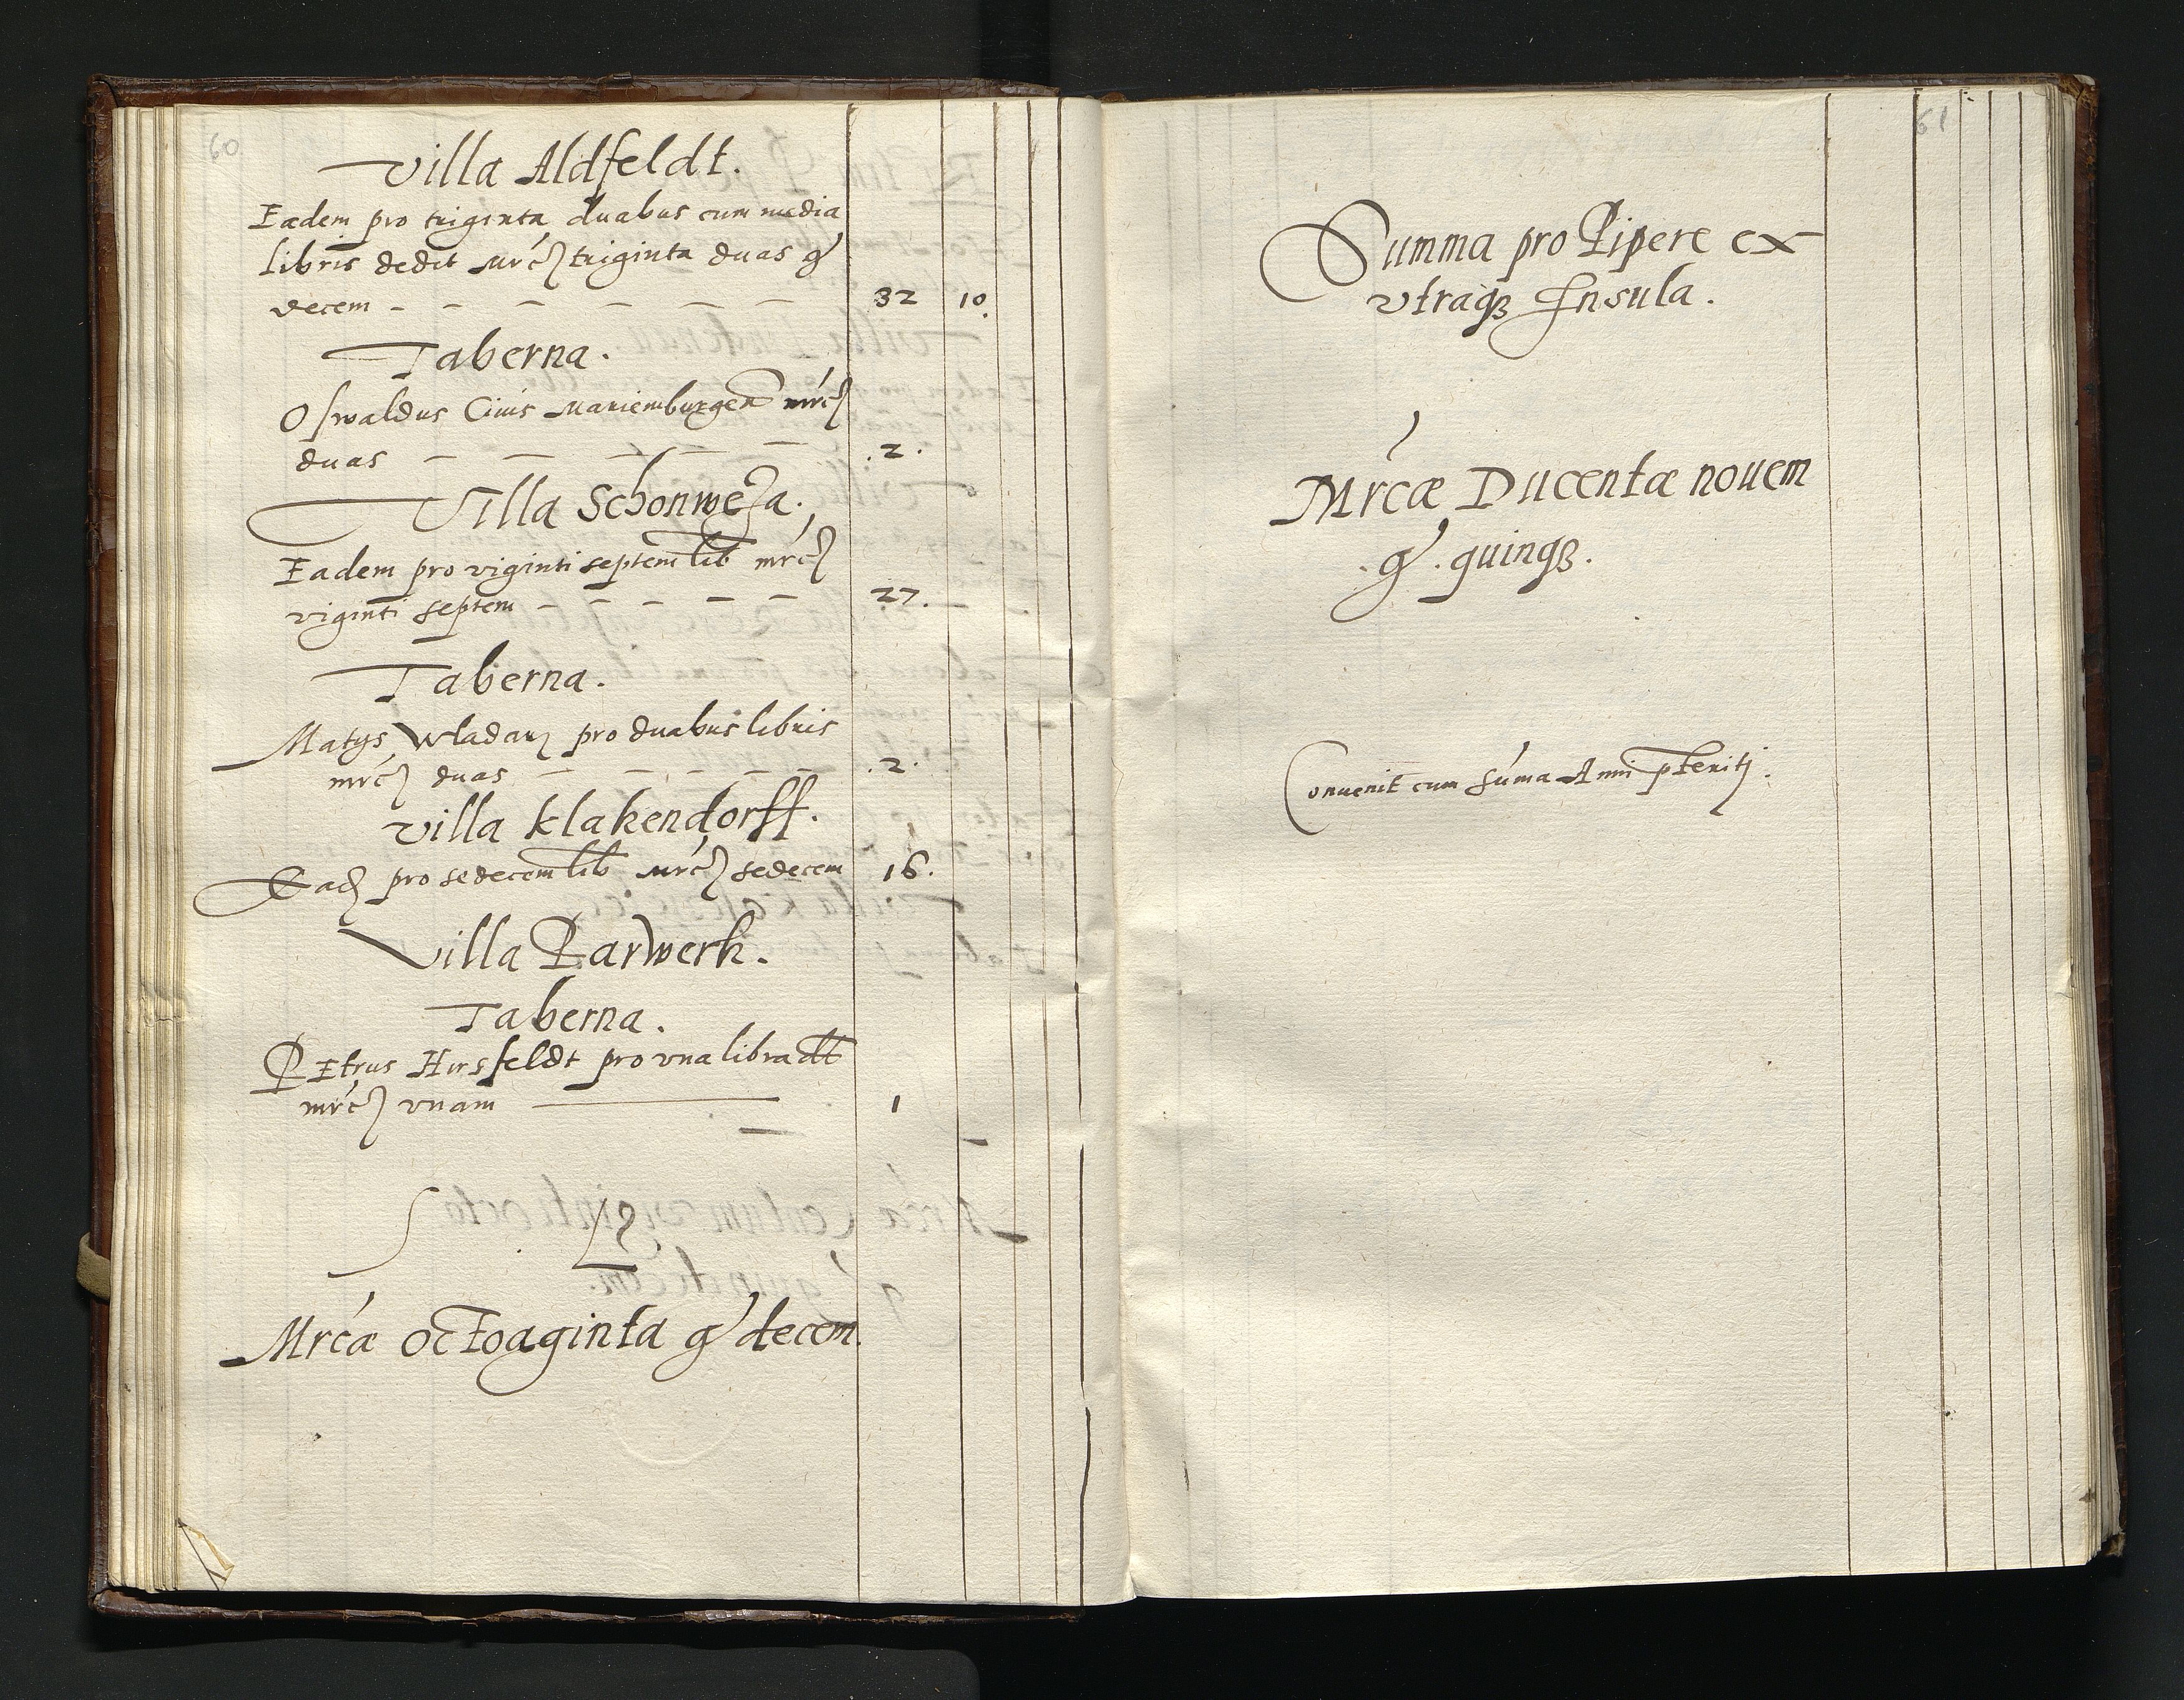 60
Villa Aldfeldt.
Eadem pro triginta duabus cum media
libris dedit mrc triginta duas g
decem - - - - - - 32 10.
Taberna.
Oswaldus Ciuis Mariemburgen mrc
duas - - - - - .2.
Villa Schonwesa.
Eadem pro viginti septem lib mrc
viginti septem - - - - - 27.
Taberna.
Matys Wladarz pro duabus libris
mrc duas - - - - .2.
Villa Klakendorff.
Ead pro sedecem lib mrc sedecem 16.
Villa Parwerk.
Taberna.
Petrus Hirsfeldt pro vna libra dt
mrc vnam 1
Mrcæ octoaginta g decem.
61
Summa pro Pipere ex
vtraqꝫ Insula.
Mrcæ Ducentæ nouem
.g. quinqꝫ.
Conuenit cum suma Anni pteritj.